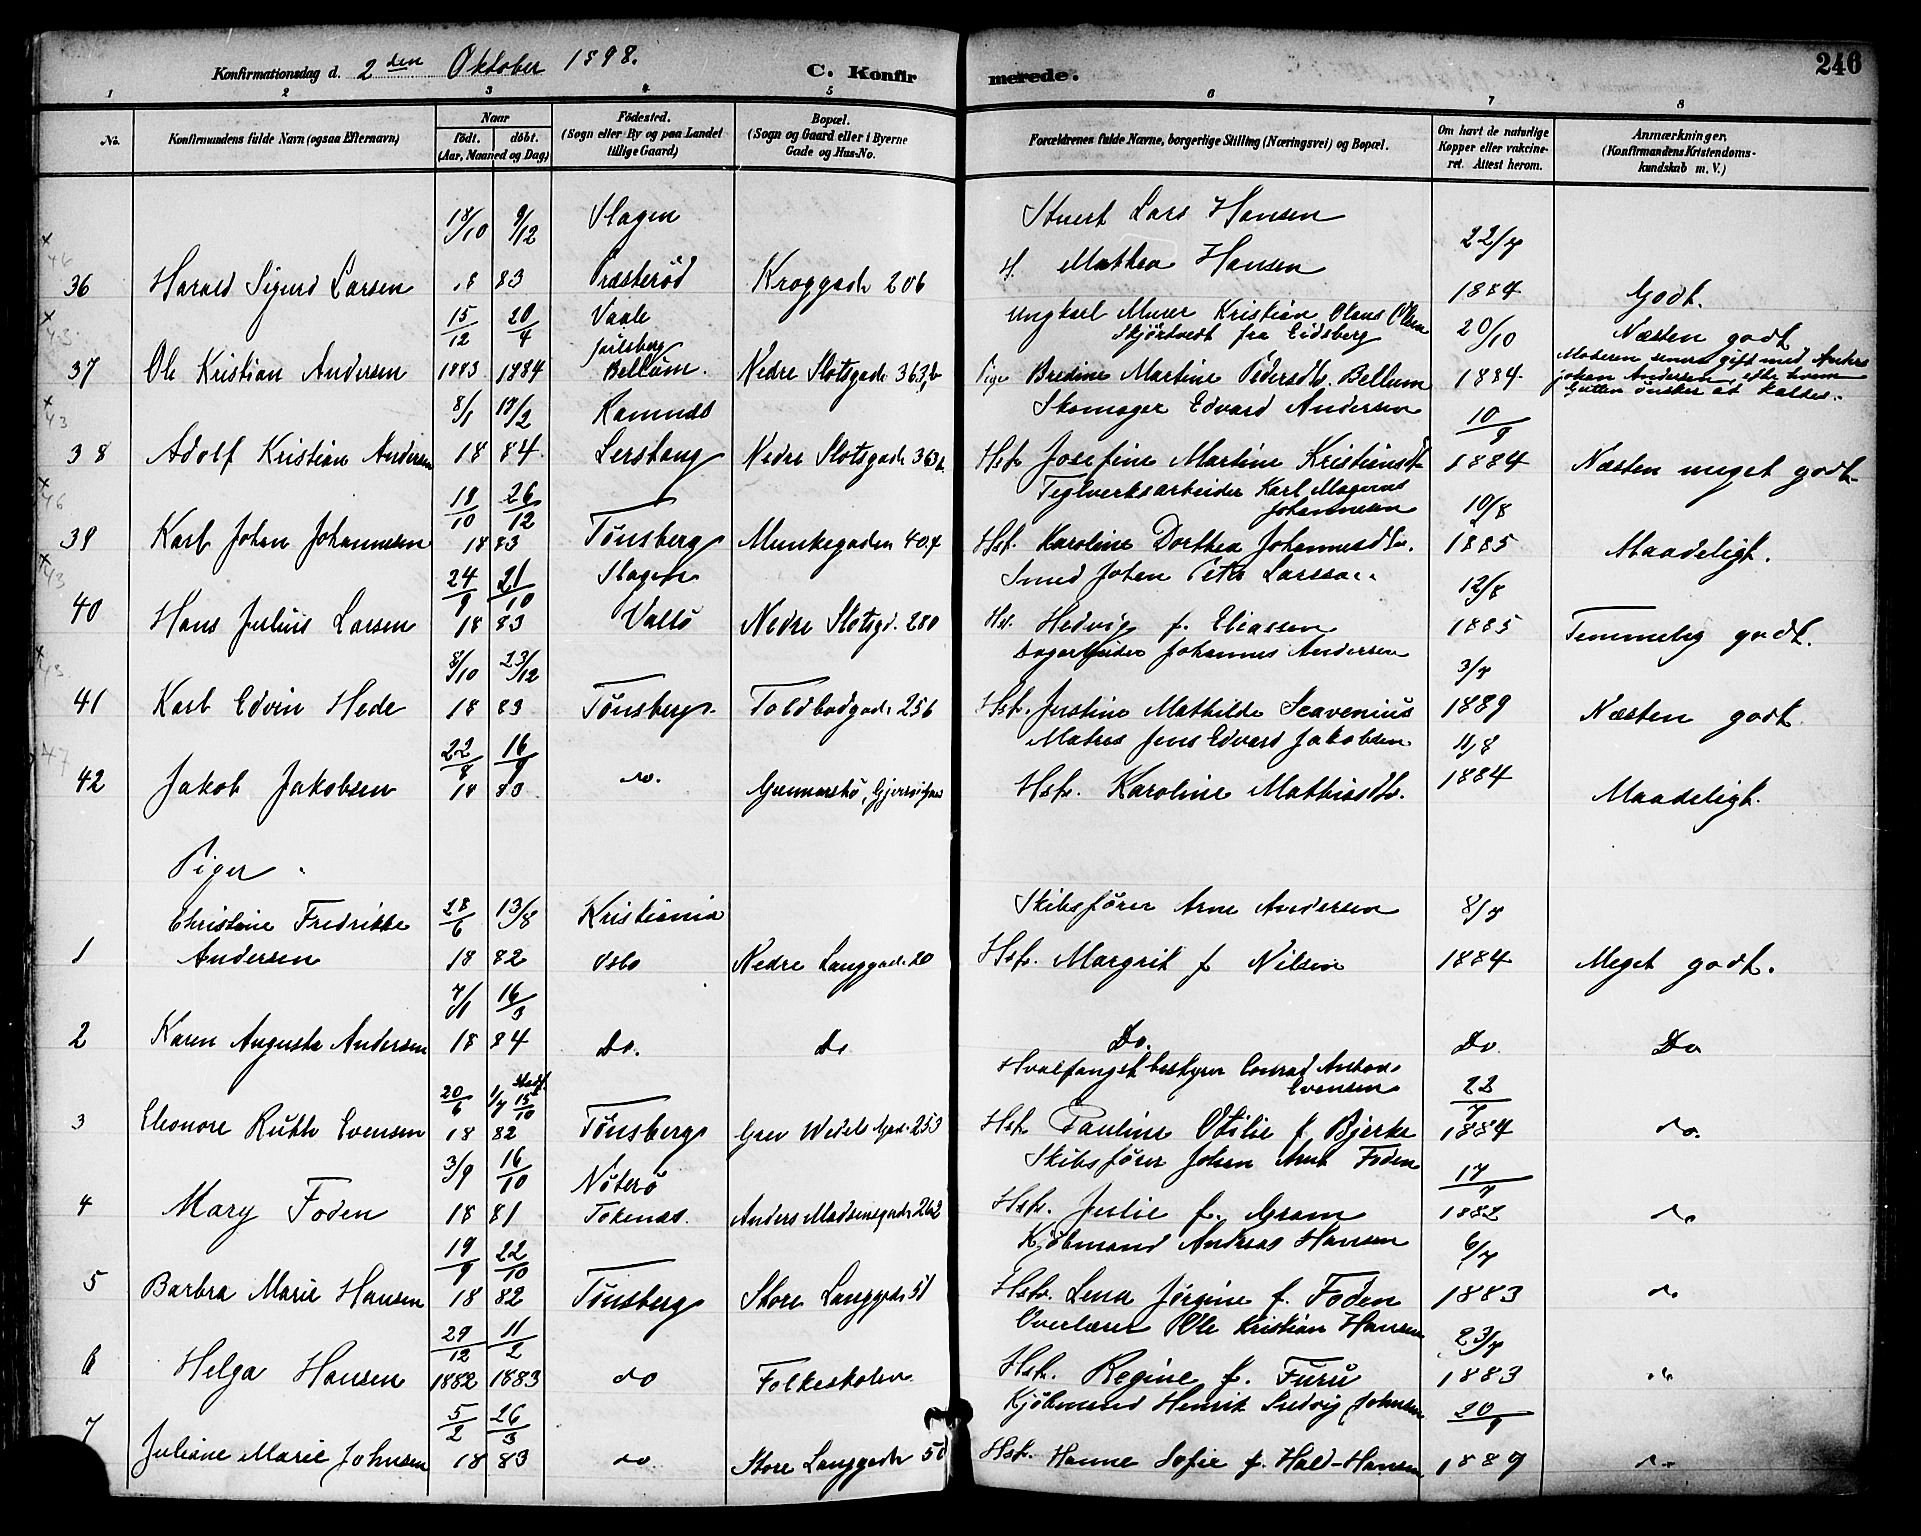 Konfirmationsdag d. 2den Oktober 1898. C. Konfirmerede. 246
1 2 3 4 5 6 7 8
No. Konfirmandens fulde Navn (ogsaa Efternavn) Naar født. døbt. (Aar, Maaned og Dag) Fødested. (Sogn eller By og paa Landet tillige Gaard) Bopæl. (Sogn og Gaard eller i Byerne Gade og Hus-No. Forældrenes fulde Navne, borgerlige Stilling (Næringsvei) og Bopæl. Om havt de naturlige Kopper eller vaccineret. Attest herom. Anmærkninger. (Konfirmandens Kristendomskundskab m. V.)
18/10 9/12 Slagen Lars Hansen 22/7
36 Harald Sigurd Larsen 18 83 Præsterød Kroggade 206 H. Mathea Hansen 1884 Godt.
15/12 20/4 Vaale Jarlsberg Ungkarl Murer Kristian Olaus Olsen Skjørtvedt fra Eidsberg 20/10 Næsten godt
37 Ole Kristian Andersen 1883 1884 Bellum. Nedre Slotsgade 363b Pige Bredine Martine Pedersdtr. Bellum 1884 Moderen senere gift med Anders Johan Andersen, efter hvem Gutten ønsker at kaldes.
8/1 17/2 Ramnæs Skomager Edvard Andersen 10/9
38 Adolf Kristian Andersen 18 84 Lerstang Nedre Slotsgade 363b Hstr. Josefine Martine Kristiansdtr 1884 Næsten meget godt
18/10 26/12 Teglverksarbeider Karl Magnus Johannesen 10/8
39 Karl Johan Johannesen 18 83 Tønsberg Munkegaden 407 Hst. Karoline Dorthea Johannesdtr. 1885 Maadeligt.
24/9 21/10 Slagen Smed Johan Peter Larssen 12/8
40 Hans Julius Larsen 18 83 Vallø Nedre Slotsgd. 280 Hst. Hedvig f. Eliassen 1885 Temmelig godt.
8/10 23/12 Dagarbeider Johannes Andersen 3/7
41 Karl Edvin Hede 18 83 Tønsberg. Toldbodgade 256 Hstr. Justine Mathilde Scavenius 1889 Næsten godt.
22/8 16/9 Matros Jens Edvard Jakobsen 11/8
42 Jakob Jakobsen 18 80 do. Gunnarsbø, Hstr. Karoline Mathiasdtr. 1884 Maadeligt.
Piger
Christine Fredrikke 28/6 13/8 Kristiania Skibsfører Arne Andersen 8/7
1 Andersen 18 82 Oslo Nedre Langgade 20 Hstr. Margrit f Nilsen 1884 Meget godt.
7/1 16/3
2 Karen Augusta Andersen 18 84 Do. Do Do. Do Do
20/6 1/7 Stadf. 15/10 Hvalfangstbestyrer Conrad Anton Evensen 22/7
3 Eleonore Ruth Evensen 18 82 Tønsberg Grev Wedels Gade 253 Hstr. Pauline Otilie f. Bjerke 1884 do.
3/9 16/10 Nøterø Skibsfører Johan Arnt Foden 17/7
4 Mary Foden 18 81 Tokenæs. Anders Madsensgade 262 Hstr. Julie f. Gram 1882 do
19/9 22/10 Kjøbmand Andreas Hansen 6/7
5 Barbra Marie Hansen 18 82 Tønsberg Store Langgade 51 Hstr. Lena Jørgine f. Foden 1883 do
29/12 11/2 Overlærer Ole Kristian Hansen 23/7
6 Helga Hansen 1882 1883 do Folkeskolen Hstr. Regine f. Furu 1883 do
5/2 26/3 Kjøbmand Henrik Ludvig Johnsen 20/9
7 Juliane Marie Johnsen 18 83 do Store Langgade 50 Hstr. Hanne Sofie f. Hald-Hansen 1889 do